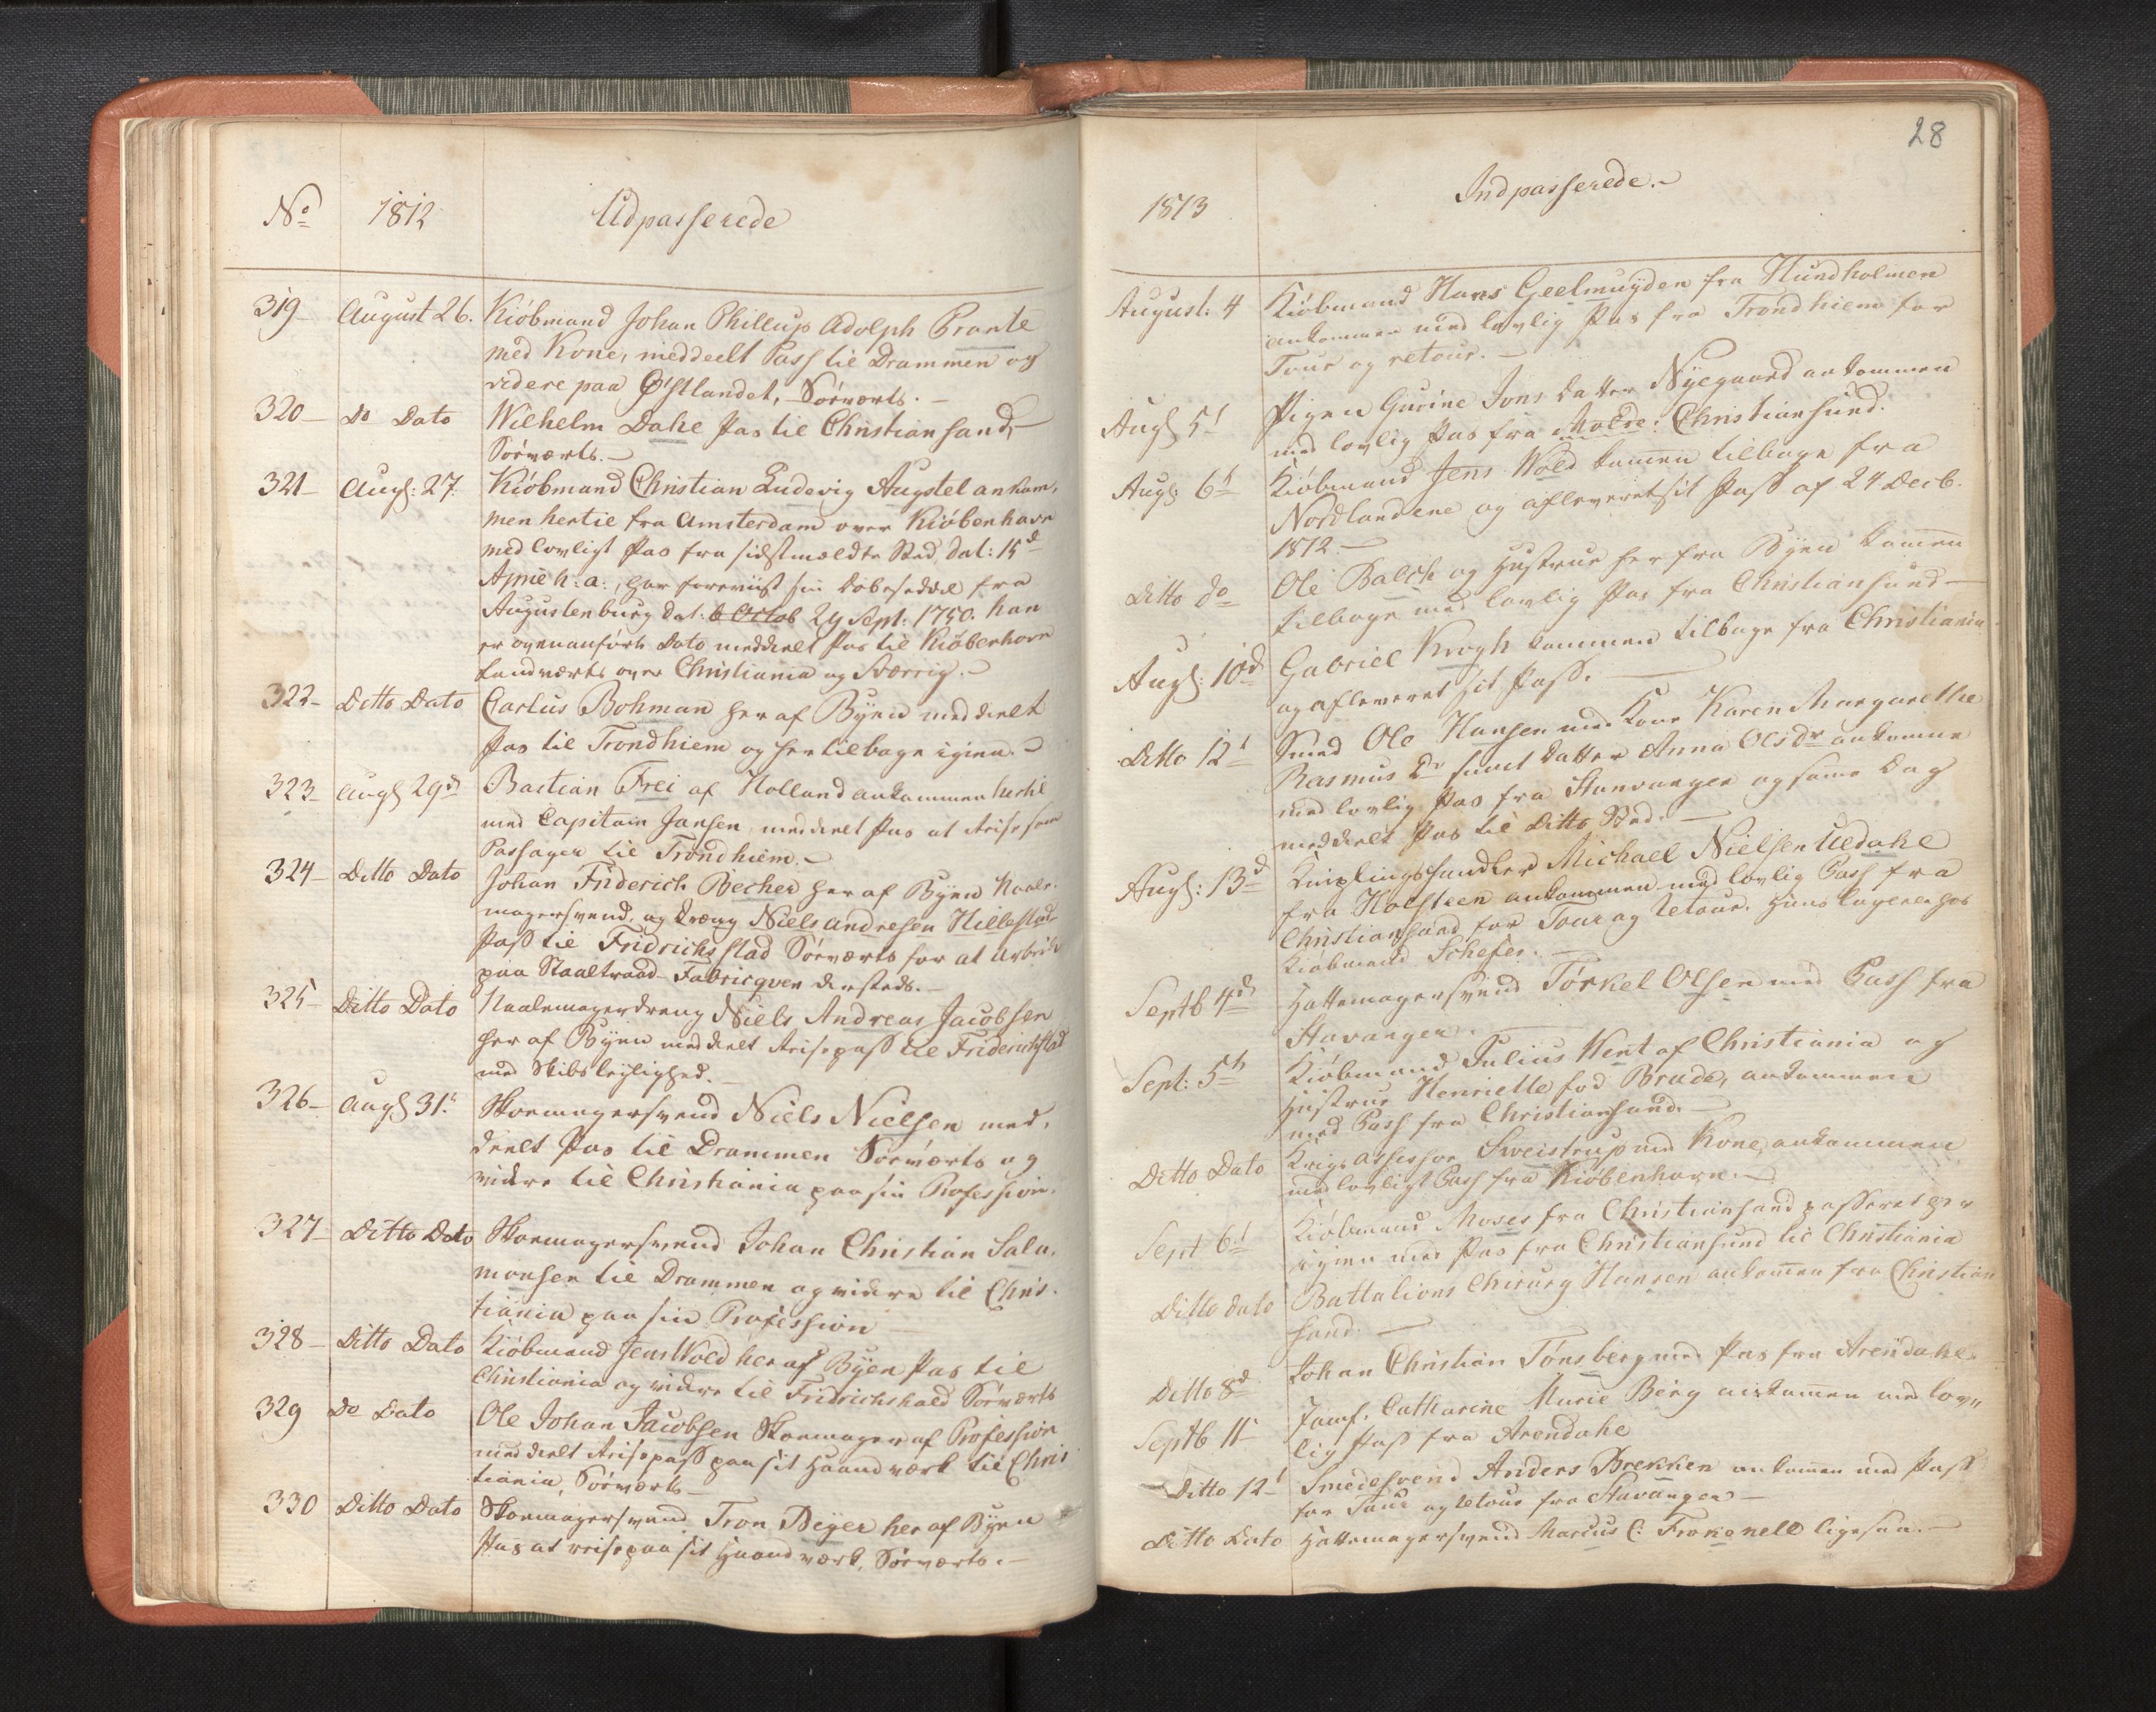 No 1812 Udpasserede
319 August 26. Kiöbmand Johan Phillup Adolph Prante
med Kone, meddeelt Pass til Drammen og
videre paa Østlandet, Söeværts.
320 Do Dato Wilhelm Dahl Pas til Christiansand,
Söeværts.
321 Augs: 27. Kiöbmand Christian Ludevig Augstel ankom,
men hertil fra Amsterdam over Kiöbenhavn
med lovligt Pas fra sidstmældte Sted, dat: 15d
April h: a:, har foreviist sin Döbeseddel fra
Augustenburg dat: 6 Octob 24 Sept: 1750. han
er ovenanförte Dato meddeelt Pas til Kiöbenhavn
Landværts over Christiania og Sverrig.
322 Ditto Dato Carlus Bohman her af Byen meddeelt
Pas til Trondhiem og her tilbage igien.
323 Augs 29d Bastian Frei af Holland ankommen hertil
med Capitain Jansen, meddeelt Pas at reise som
Passager til Trondhiem.
324 Ditto Dato Johan Friderich Becher her af Byen Naale-
magersvend, og Dreng Niels Andresen Hillestad
Pass til Fridrichsstad Söeværts for at arbeide
paa Staaltraad Fabricqven dersteds.
325 Ditto Dato Naalemagerdreng Niels Andreas Jacobsen
her af Byen meddeelt Reisepass til Friderichstad
med Skibsleylighed.
326 Augs 31t Skomagersvend Niels Nielsen med,
deelt Pas til Drammen Söeværts og
vidre til Christiania paa sin Profession.
327 Ditto Dato Skomagersvend Johan Christian Salo,
monsen til Drammen og vidre til Chris-
tiania paa sin Profession
328 Ditto Dato Kiöbmand Jens Wold her af Byen Pas til
Christiania og vidre til Fridrichshald Söeværts
329 Do Dato Ole Johan Jacobsen Skomager af Profession
meddeelt Reisepass paa sit Haandværk til Chris
tiania, Söeværts
330 Ditto Dato Skomagersvend Tron Beyer her af Byen
Pas at reise paa sit Haandværk, Söeværts.
28
1813 Indpasserede.
August: 4 Kiöbmand Hans Geelmuyden fra Hundholmen
ankommen med lovlig Pas fra Trondhiem for
Tour og retour.
Augs 5t Pigen Gurine Jons Datter Nyegaard ankommen
med lovlig Pas fra Molde: Christiansund.
Augs: 6t Kiöbmand Jens Wold kommen tilbage fra
Nordlandene og afleveret sit Pass af 24 Decb.
1812.
Ditto do Ole Balch og Hustrue her fra Byen kommen
tilbage med lovlig Pas fra Christiansund
Augs: 10d Gabriel Krogh kommen tilbage fra Christiania
og afleveret sit Pass.
Ditto 12t Smed Ole Hansen med Kone Karen Margarethe
Rasmus Dr samt Datter Anna Olsdr ankomne
med lovlig Pas fra Stanvanger og samme Dag
meddeelt Pas til Ditto Sted.
Augs: 13d Kniplingshandler Michael Nielsen Uldahl
fra Holsteen ankommen med lovlig Pass fra
Christiansand for Tour og retour. Hans Logie er hos
Kiöbmand Schefer.
Septb 4d Hattemagersvend Törkel Olsen med Pass fra
Stavanger.
Sept: 5t Kiöbmand Julius Kent af Christiania og
Hustrue Henriette fød Brude, ankommen
med Pass fra Christiansand.
Ditto Dato Krigs Assessor Sweistrup med Kone, ankommen
med lovligt Pass fra Kiöbenhavn.
Sept 6t Kiöbmand Moses fra Christiansand passeret her
igien med Pas fra Christiansund til Christiania
Ditto dato Battalions Chirurg Hansen ankommen fra Christian
sand.
Ditto 8d Johan Christian Tönsberg med Pas fra Arendahl
Septb 11t Jomf. Catharine Marie Berg ankommen med lov,,
lig Pass fra Arendahl
Ditto 12t Smedesvend Anders Brekken ankommen med Pass
for Tour og retour fra Stavanger
Ditto Dato Hattemagersvend Marcus C: ligesaa.